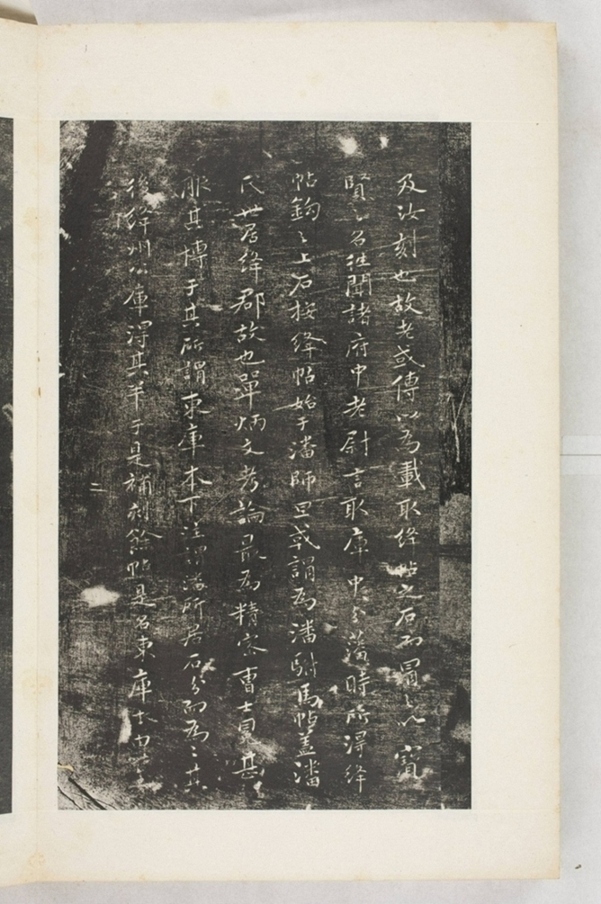 及汝刻也故老或傳以為載取絳帖之石而冒之以寶
賢之名往聞諸府中老尉言取庫中分藩時所得絳
帖鉤之上石按絳帖始于潘師旦或謂為潘駙馬帖蓋潘
氏世居絳郡故也單炳文考論最為精密曹士冕甚
服其博于其所謂東庫本下注謂潘所居石分而為二其
後絳州公庫得其半于是補刻餘帖是名東庫本
二